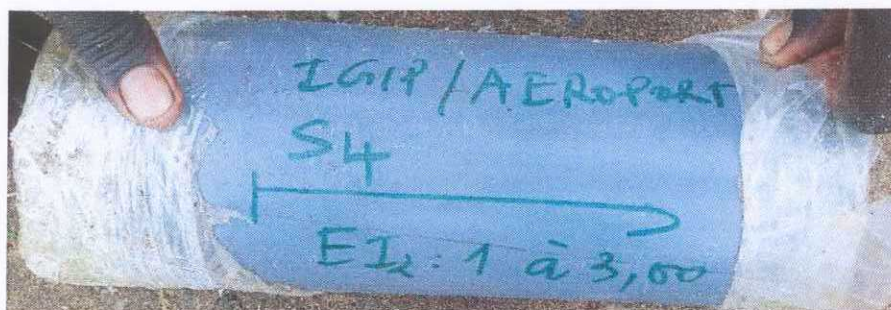 IGIP/AEROPORT
S4
EI2: 1 à 3,00